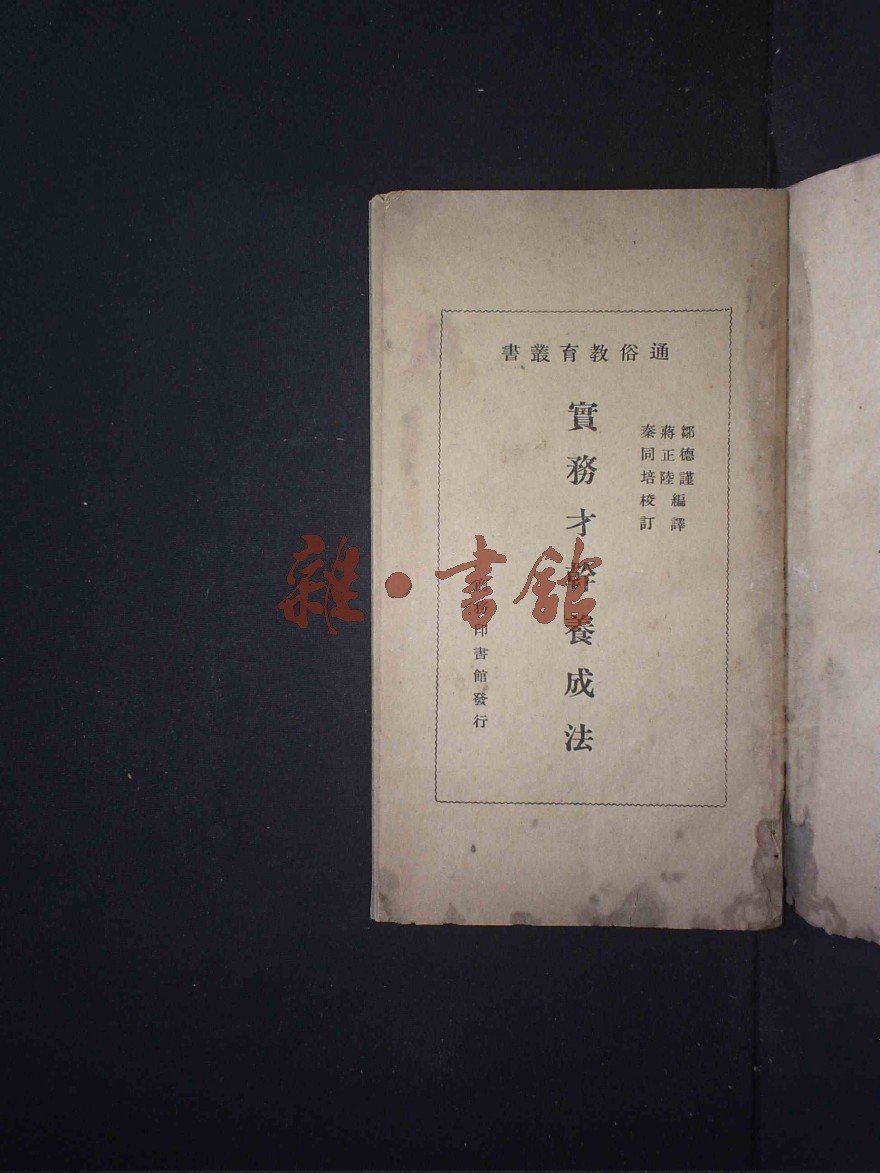 通俗教育叢書
鄒德謹
蔣正陸
編譯
秦同培校訂
實務才幹養成法
印書館發行
雜·書館